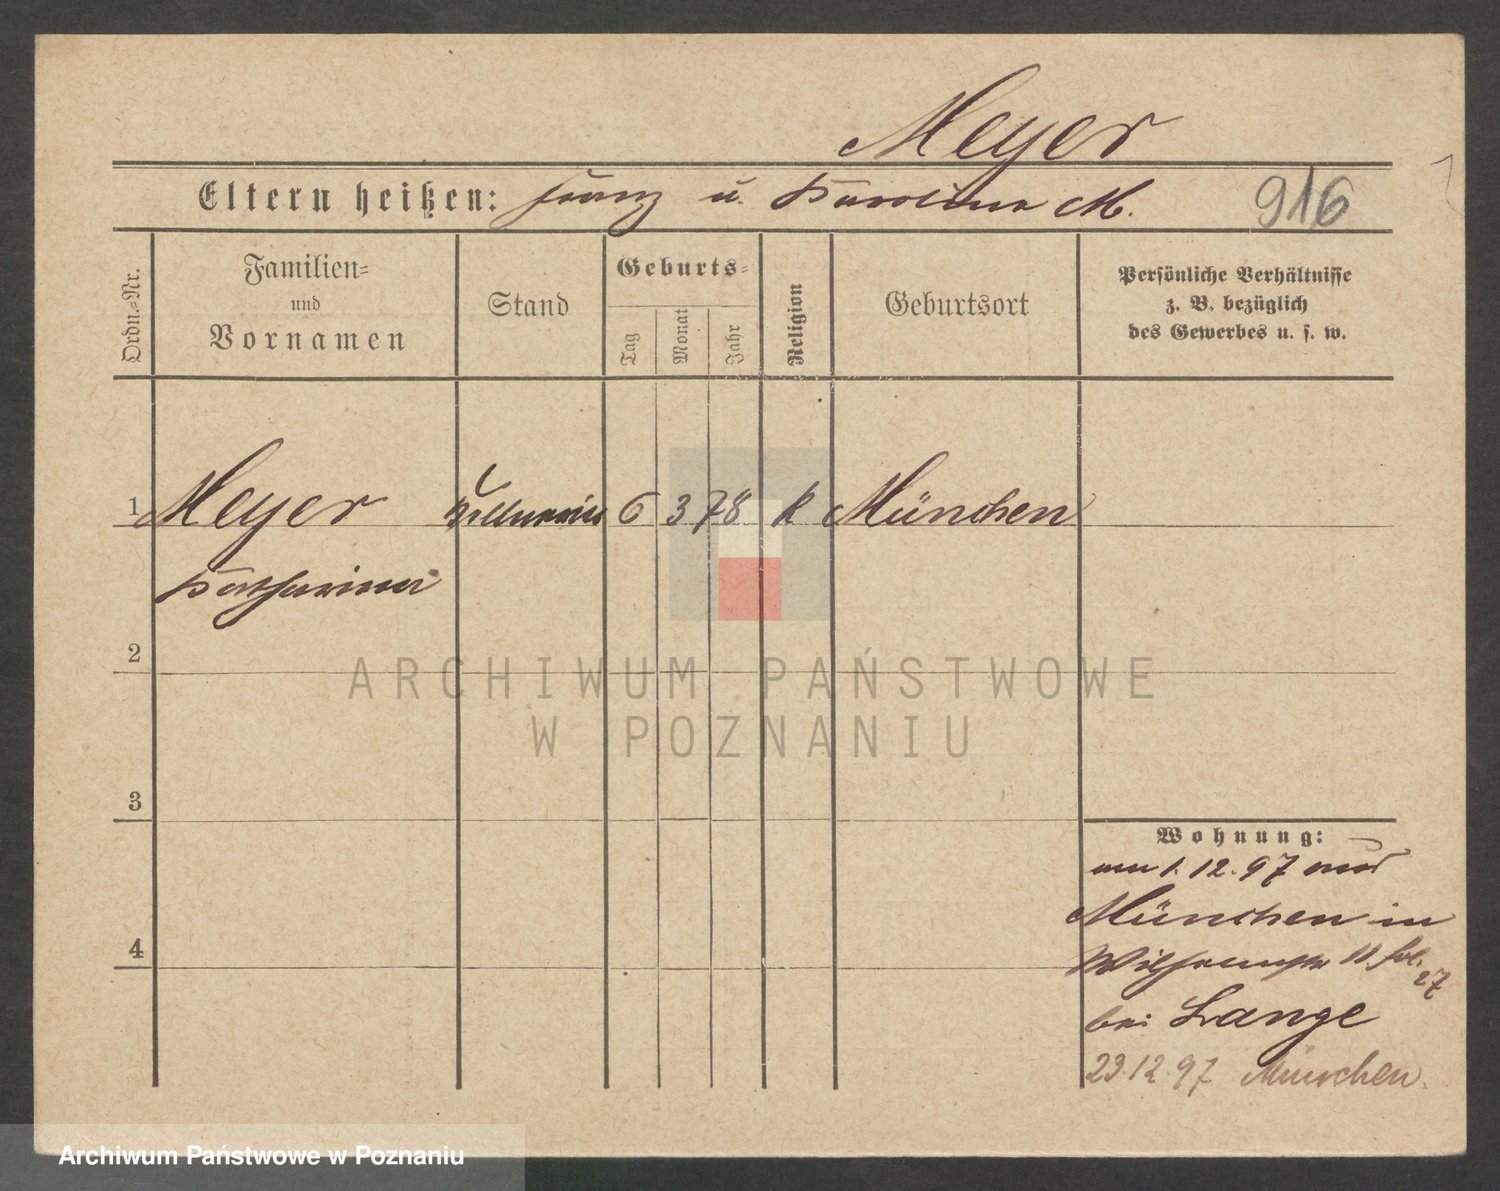 Meyer
Eltern heißen: Franz u. Karolina M. 916
Ordn.-Nr.
Familien-
und
Vornamen
Stand
Geburts-
Tag
Monat
Jahr
Religion
Geburtsort
Persönliche Verhältnisse
z. B. bezüglich
des Gewerbes u. s. w.
1 Meyer Kellnerin 6 3 78 k München
Katharina
2
ARCHIWUM PAŃSTWOWE
W POZNANIU
3
Wohnung:
am 1.12.97 aus
München in
4
Wilhelmstr 11. fol. 27
bei Lange
23.12.97 München.
Archiwum Państwowe w Poznaniu